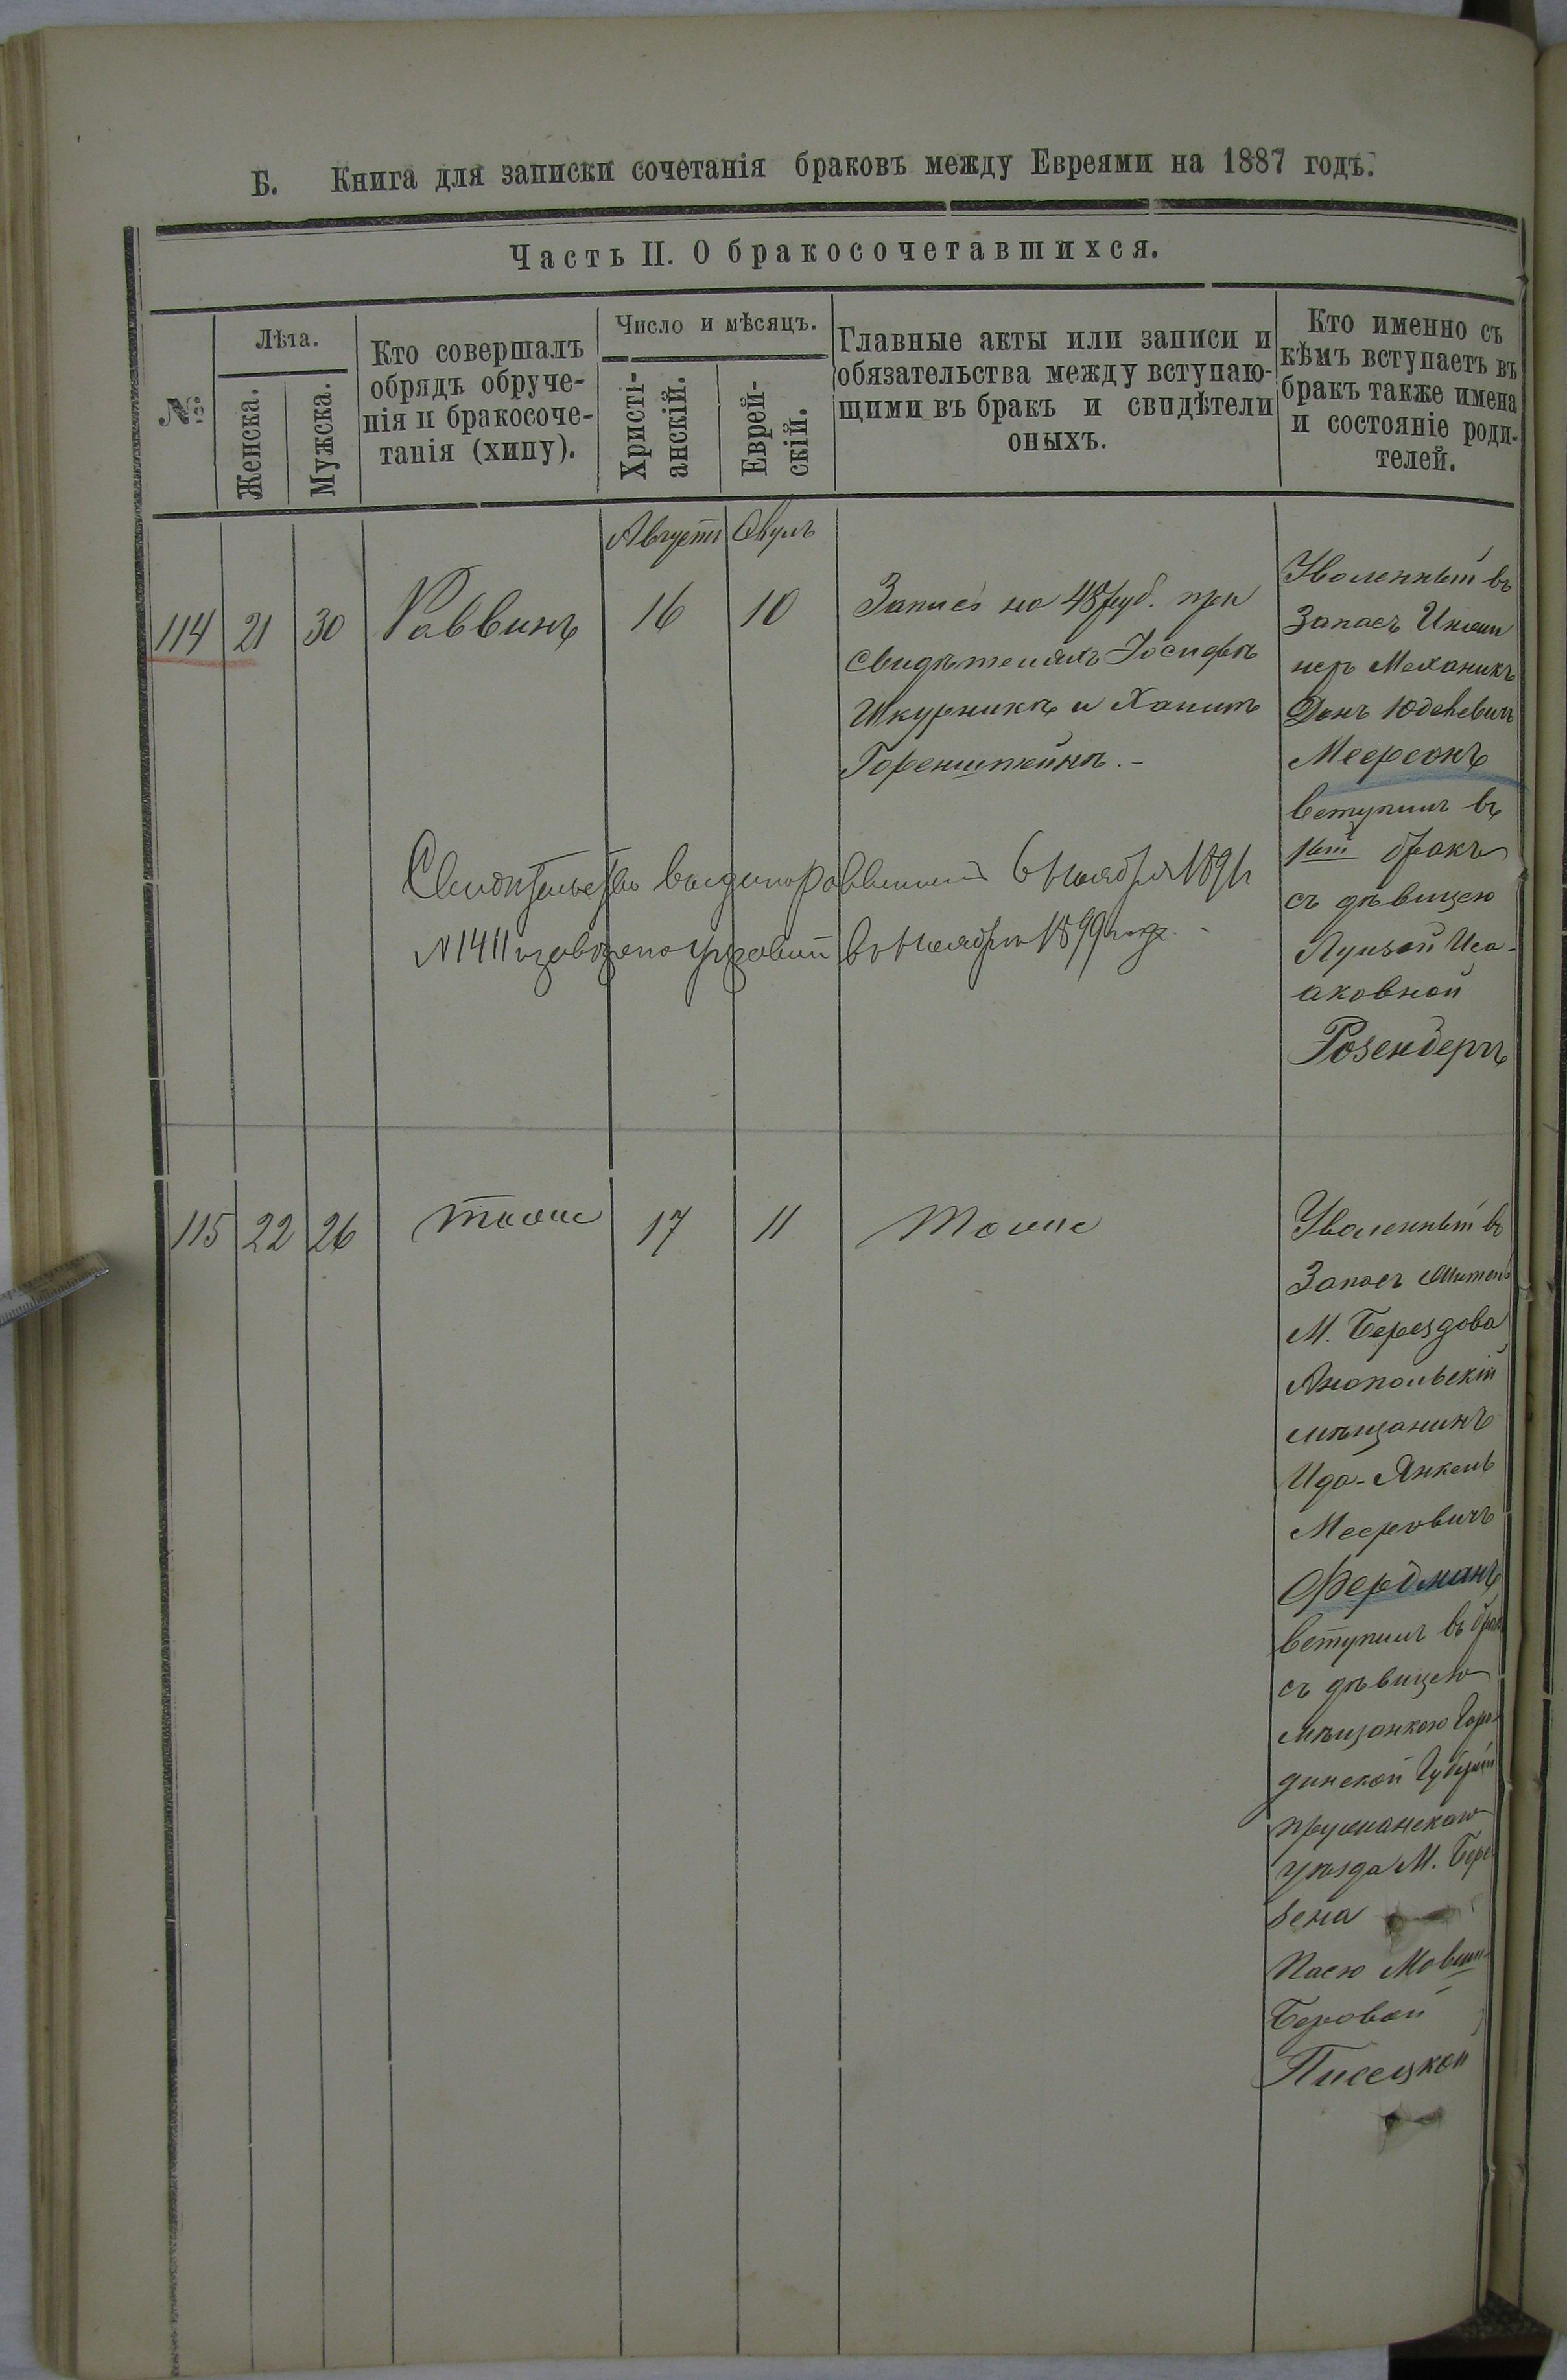 Б. Книга для записки сочетанія браковъ между Евреями на 1887 годъ.
Часть II. О бракосочетавшихся.
№
Лѣта.
Женска.
Мужска.
Кто совершалъ
обрядъ обруче-
нія и бракосоче-
танія (хипу).
Число и мѣсяцъ.
Христі-
анскій.
Еврей-
скій.
Главные акты или записи и
обязательства между вступаю-
щими въ бракъ и свидѣтели
оныхъ.
Кто именно съ
кѣмъ вступаетъ въ
бракъ также имена
и состояніе роди-
телей.
Августъ
114 21 30 Раввинъ 16 10
Запись на 48 руб. при
свидѣтеляхъ Іосифѣ
Шкурникѣ и Хаимѣ
Горенштейнѣ.-
Уволенный въ
Запасъ Инжи
неръ Механикъ
Юделевичъ
Меерсонъ
вступилъ въ
1ый бракъ
съ дѣвицею
Луизой Иса-
аковной
Розенберъ
Свидѣтельство
6 Ноября 189
N 1411 Ноября 1899 года
115 22 26 тоже 17 11 Тоже
Уволенный въ
Запасъ Житель
М. Берездова
Анопольскій
мѣщанинъ
Ида-Янкель
Мееровичъ
Фердманъ
вступилъ въ бракъ
съ дѣвицею
мѣщанкою Гро-
динской Губерніи
пружанскаго
уѣзда М. Бере
зена
Пасю Мовши-
Беровой
Писецкой